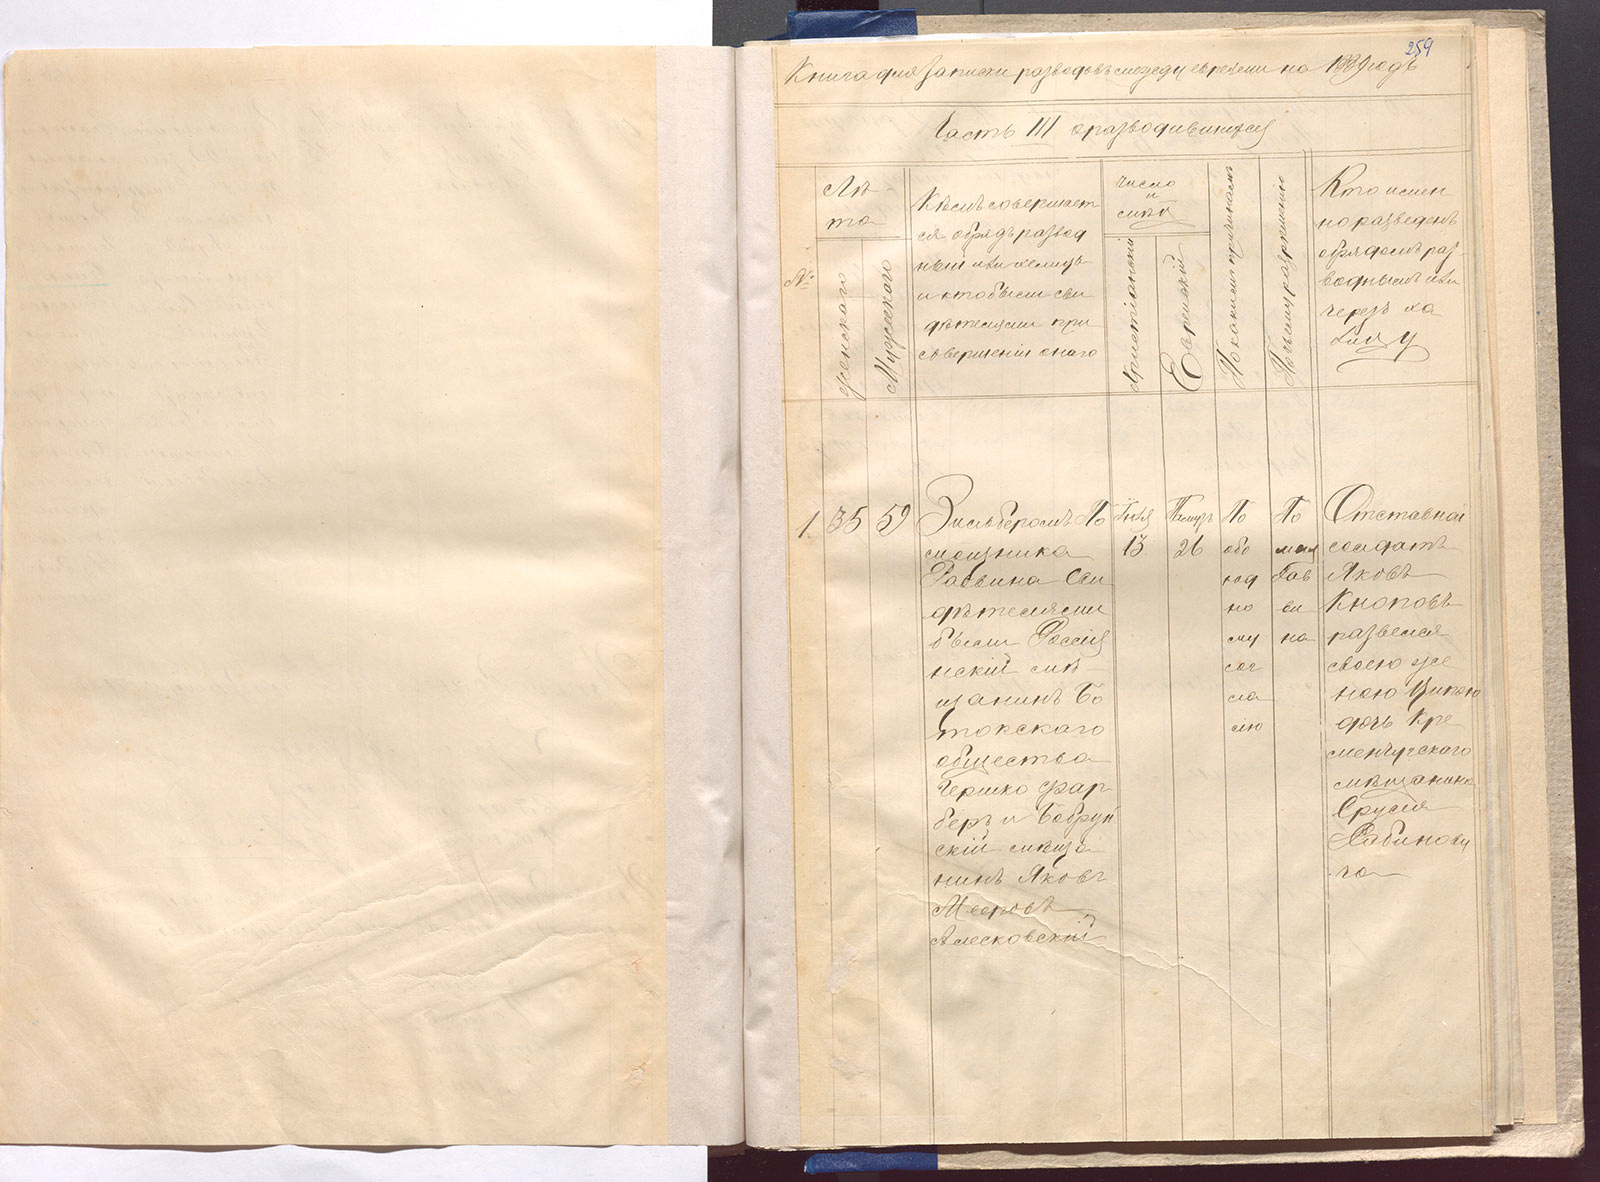 259
Книга для записки разводовъ между евреями на 1889 годъ
Часть III о разводившихся
№
Лѣ-
та
Женскаго
Мужскаго
Кѣмъ совершает
ся обрядъ развод
ный или халицъ
и кто были сви
дѣтелями при
совершеніи онаго
Число
и
мѣс.
Христіанскій
Еврейскій
По какимъ причинамъ
По чьему разрѣшенію
Кто имен
но разведенъ
обрядомъ раз
воднымъ или
черезъ ха
лицу
1. 35 59
Зильберомъ По
мощника
Раввина Сви
дѣтелями
были Россія
нскій мѣ-
щанинъ Бо
токскаго
общества
Гершко Фар
беръ и Бобруй
скій мѣща
нинъ Яковъ
Мееровъ
Алесковскій
Іюля
13
Тамузъ
26
По
обо
юд
но
му
сог
ла
сію
По
мощ
Рав
ви
на
Отставной
солдатъ
Яковъ
Кноповъ
развелся
своею же
ною Ципою
дочь Кре
менчугскаго
мѣщанина
Сруля
Рабинови
ча